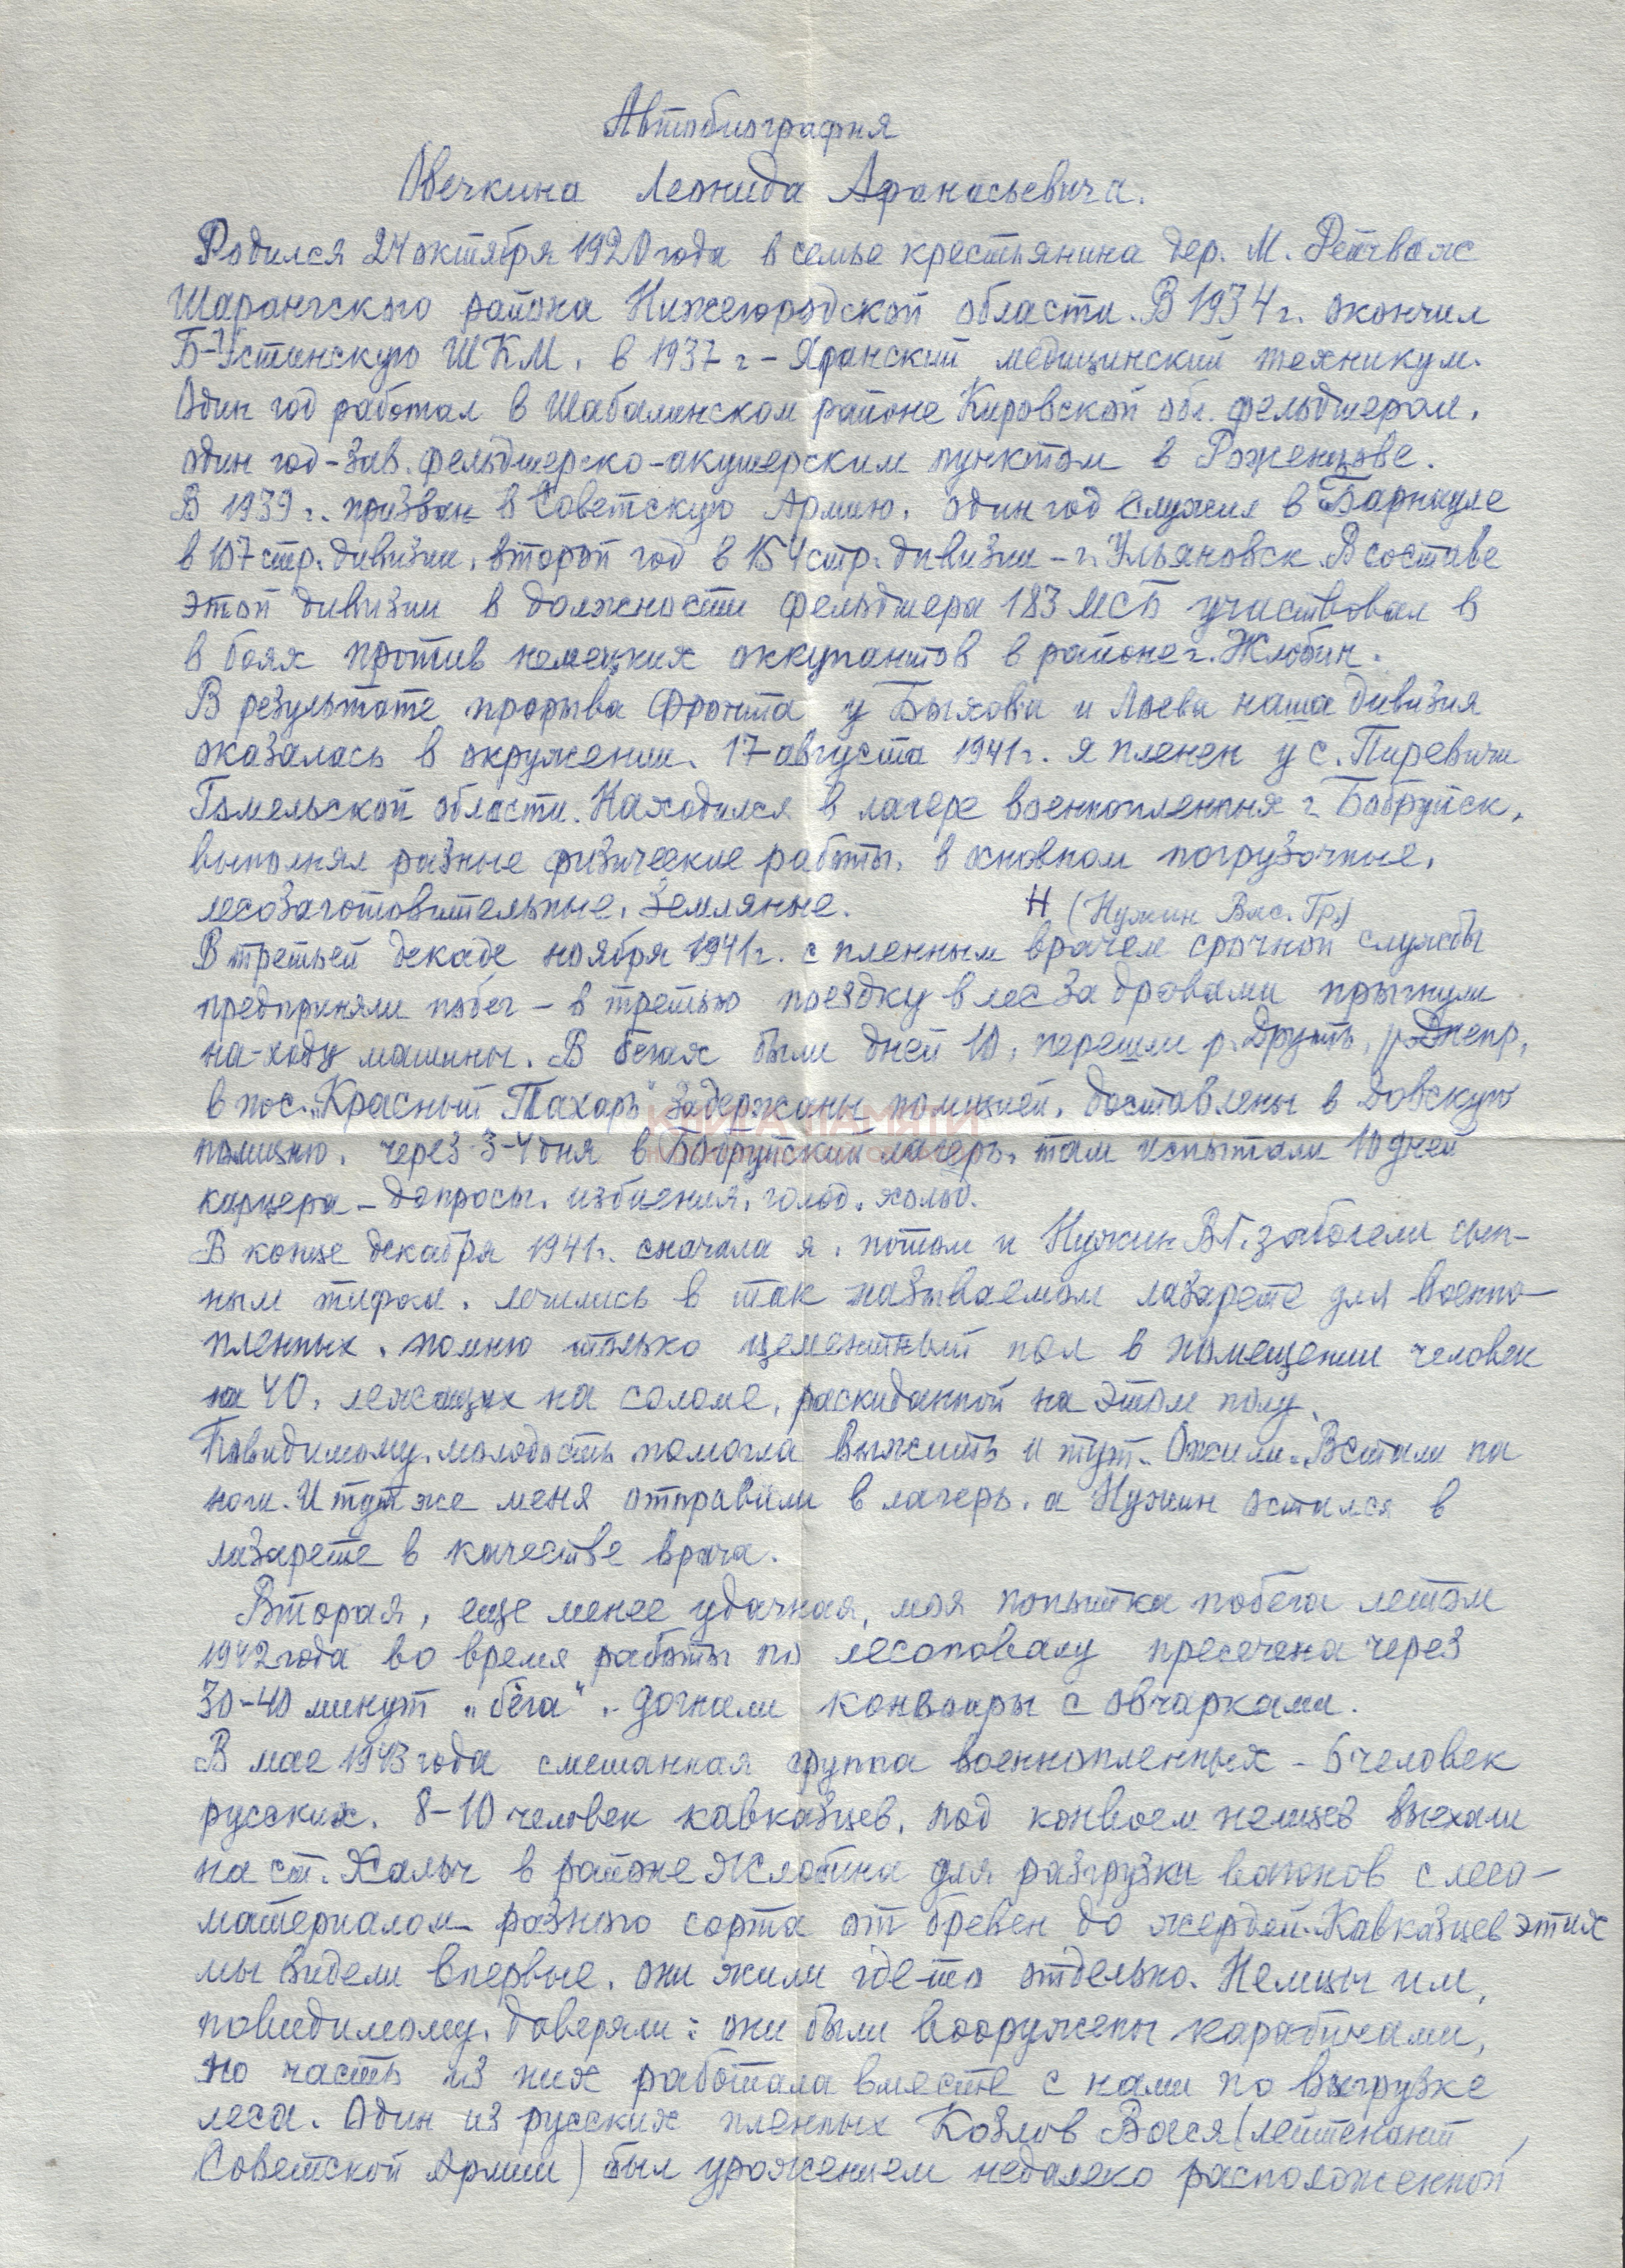 Автобиография
Овечкина Леонида Афанасьевича.
Родился 24 октября 1920 года в семье крестьянина дер. М. Рейчваж
Шарангского района Нижегородской области. В 1934 г. окончил
Б-Устинскую ШКМ, в 1937 г - Яранский медицинский техникум.
Один год работал в Шабалинском районе Кировской обл. фельдшером,
один год - зав. фельдшерско-акушерским пунктом в Роженцове.
В 1939 г. призван в Советскую Армию, один год служил в Барнауле
в 107 стр. дивизии, второй год в 154 стр. дивизии - г. Ульяновск. В составе
этой дивизии в должности фельдшера 183 МСБ участвовал в
в боях против немецких оккупантов в районе г. Жлобин.
В результате прорыва фронта у Быхова и Лоева наша дивизия
оказалась в окружении. 17 августа 1941 г. я пленен у с. Пиревичи
Гомельской области. Находился в лагере военнопленных г. Бобруйск,
выполнял разные физические работы, в основном погрузочные,
лесозаготовительные, земляные.
Н (Нужин Вас. Гр.)
В третьей декаде ноября 1941 г. с пленным врачем срочной службы
предприняли побег - в третью поездку в лес за дровами прыгнули
на-ходу машины. В бегах были дней 10, перешли р. Друть, р. Днепр,
в пос. „Красный Пахарь" задержаны полицией, доставлены в Довскую
полицию, через 3-4 дня в Бобруйский лагерь, там испытали 10 дней
карцера - допросы, избиения, голод, холод.
В конце декабря 1941 г. сначала я, потом и Нужин В.Г. заболели сып-
ным тифом, лечились в так называемом лазарете для военно-
пленных, помню только цементный пол в помещении человек
на 40, лежащих на соломе, раскиданной на этом полу.
Повидимому, молодость помогла выжить и тут. Ожили. Встали на
ноги. И тут же меня отправили в лагерь, а Нужин остался в
лазарете в качестве врача.
Вторая, еще менее удачная, моя попытка побега летом
1942 года во время работы по лесоповалу пресечена через
30-40 минут „бега", - догнали конвоиры с овчарками.
В мае 1943 года смешанная группа военнопленных - 6 человек
русских, 8-10 человек кавказцев, под конвоем немцев выехали
на ст. Хальч в районе Жлобина для разгрузки вагонов с лесо-
материалом разного сорта от бревен до жердей. Кавказцев этих
мы видели впервые, они жили где-то отдельно. Немцы им,
повидимому, доверяли: они были вооружены карабинами,
но часть из них работала вместе с нами по выгрузке
леса. Один из русских пленных Козлов Вася (лейтенант
Советской Армии) был уроженцем недалеко расположенной
КНИГА ПАМЯТИ